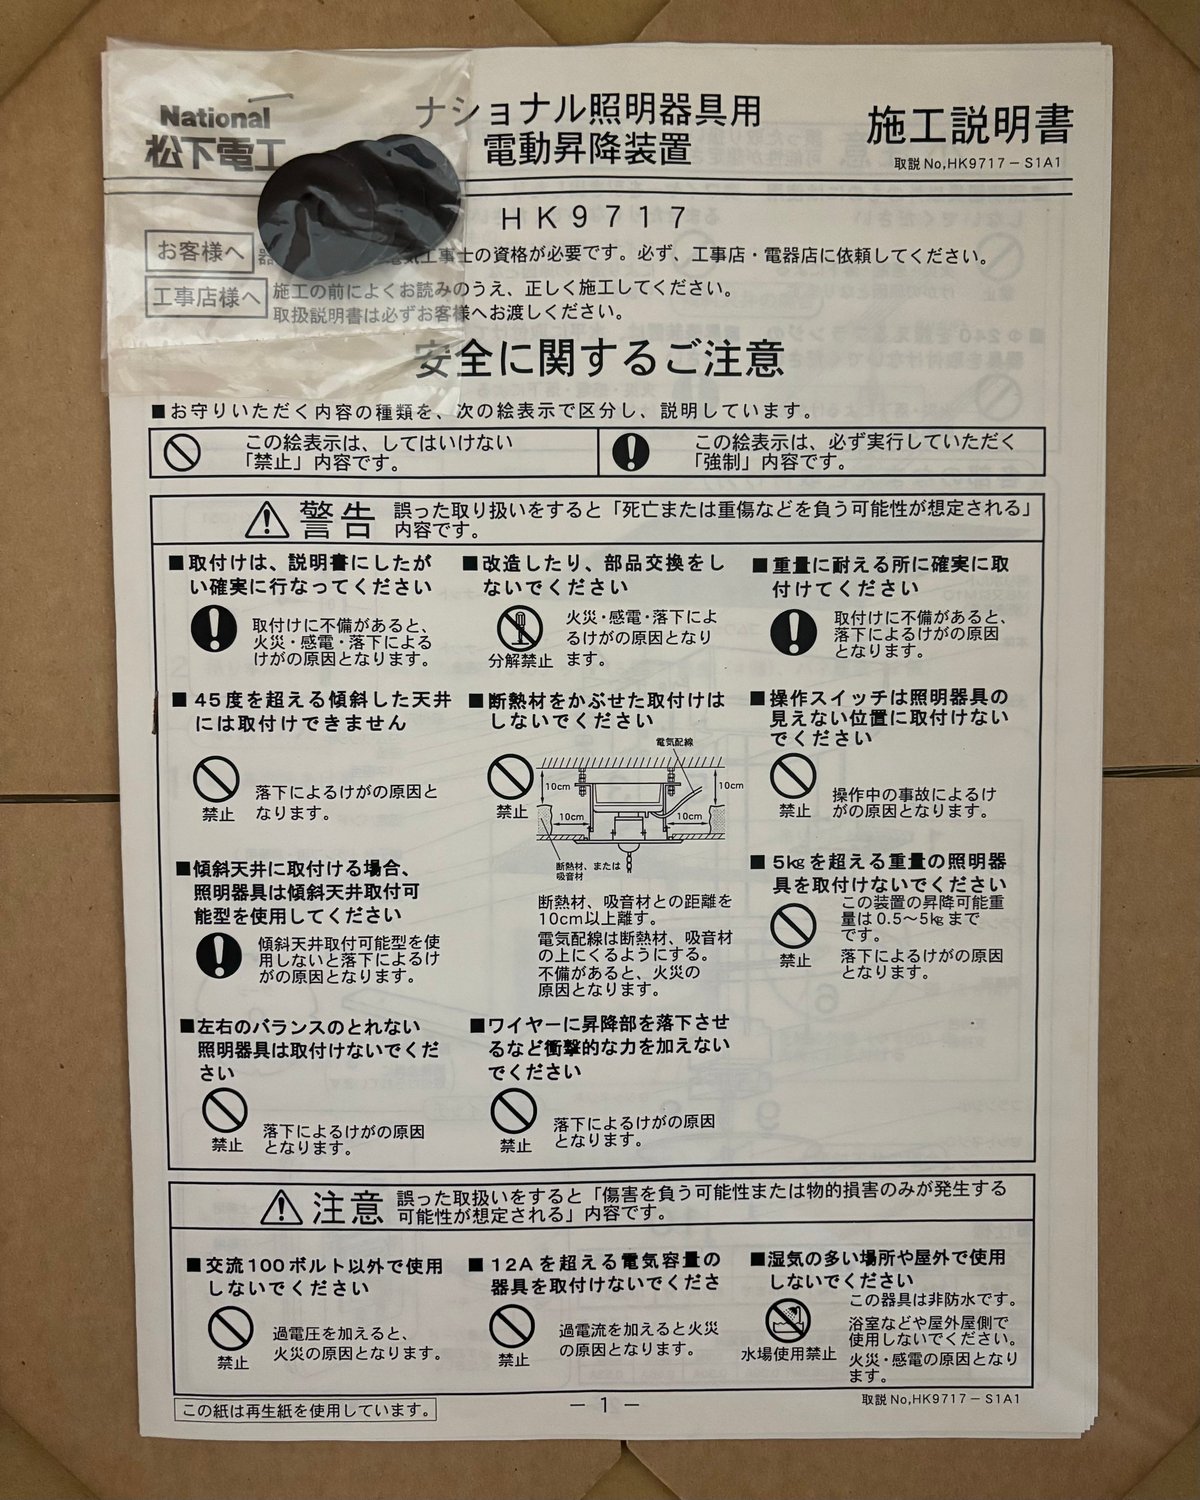 National
松下電工
ナショナル照明器具用
電動昇降装置
施工説明書
取説No,HK9717－S1A1
HK9717
お客様へ
電気工事士の資格が必要です。必ず、工事店・電器店に依頼してください。
工事店様へ
施工の前によくお読みのうえ、正しく施工してください。
取扱説明書は必ずお客様へお渡しください。
安全に関するご注意
■お守りいただく内容の種類を、次の絵表示で区分し、説明しています。
この絵表示は、してはいけない
「禁止」内容です。
この絵表示は、必ず実行していただく
「強制」内容です。
警告
誤った取り扱いをすると「死亡または重傷などを負う可能性が想定される」
内容です。
■取付けは、説明書にしたが
い確実に行なってください
取付けに不備があると、
火災・感電・落下による
けがの原因となります。
■改造したり、部品交換をし
ないでください
分解禁止
火災・感電・落下によ
るけがの原因となり
ます。
■重量に耐える所に確実に取
付けてください
取付けに不備があると、
落下によるけがの原因
となります。
■45度を超える傾斜した天井
には取付けできません
禁止
落下によるけがの原因と
なります。
■断熱材をかぶせた取付けは
しないでください
禁止
電気配線
10cm
10cm
10cm
10cm
断熱材、または
吸音材
断熱材、吸音材との距離を
10cm以上離す。
電気配線は断熱材、吸音材
の上にくるようにする。
不備があると、火災の
原因となります。
■操作スイッチは照明器具の
見えない位置に取付けない
でください
禁止
操作中の事故によるけ
がの原因となります。
■傾斜天井に取付ける場合、
照明器具は傾斜天井取付可
能型を使用してください
傾斜天井取付可能型を使
用しないと落下によるけ
がの原因となります。
■5kgを超える重量の照明器
具を取付けないでください
禁止
この装置の昇降可能重
量は0.5～5kgまで
です。
落下によるけがの原因
となります。
■左右のバランスのとれない
照明器具は取付けないでくだ
さい
禁止
落下によるけがの原因
となります。
■ワイヤーに昇降部を落下させ
るなど衝撃的な力を加えない
でください
禁止
落下によるけがの原因
となります。
注意
誤った取扱いをすると「傷害を負う可能性または物的損害のみが発生する
可能性が想定される」内容です。
■交流100ボルト以外で使用
しないでください
禁止
過電圧を加えると、
火災の原因となります。
■12Aを超える電気容量の
器具を取付けないでくださ
禁止
過電流を加えると火災
の原因となります。
■湿気の多い場所や屋外で使用
しないでください
水場使用禁止
この器具は非防水です。
浴室などや屋外屋側で
使用しないでください。
火災・感電の原因となり
ます。
この紙は再生紙を使用しています。
－1－
取説No,HK9717－S1A1